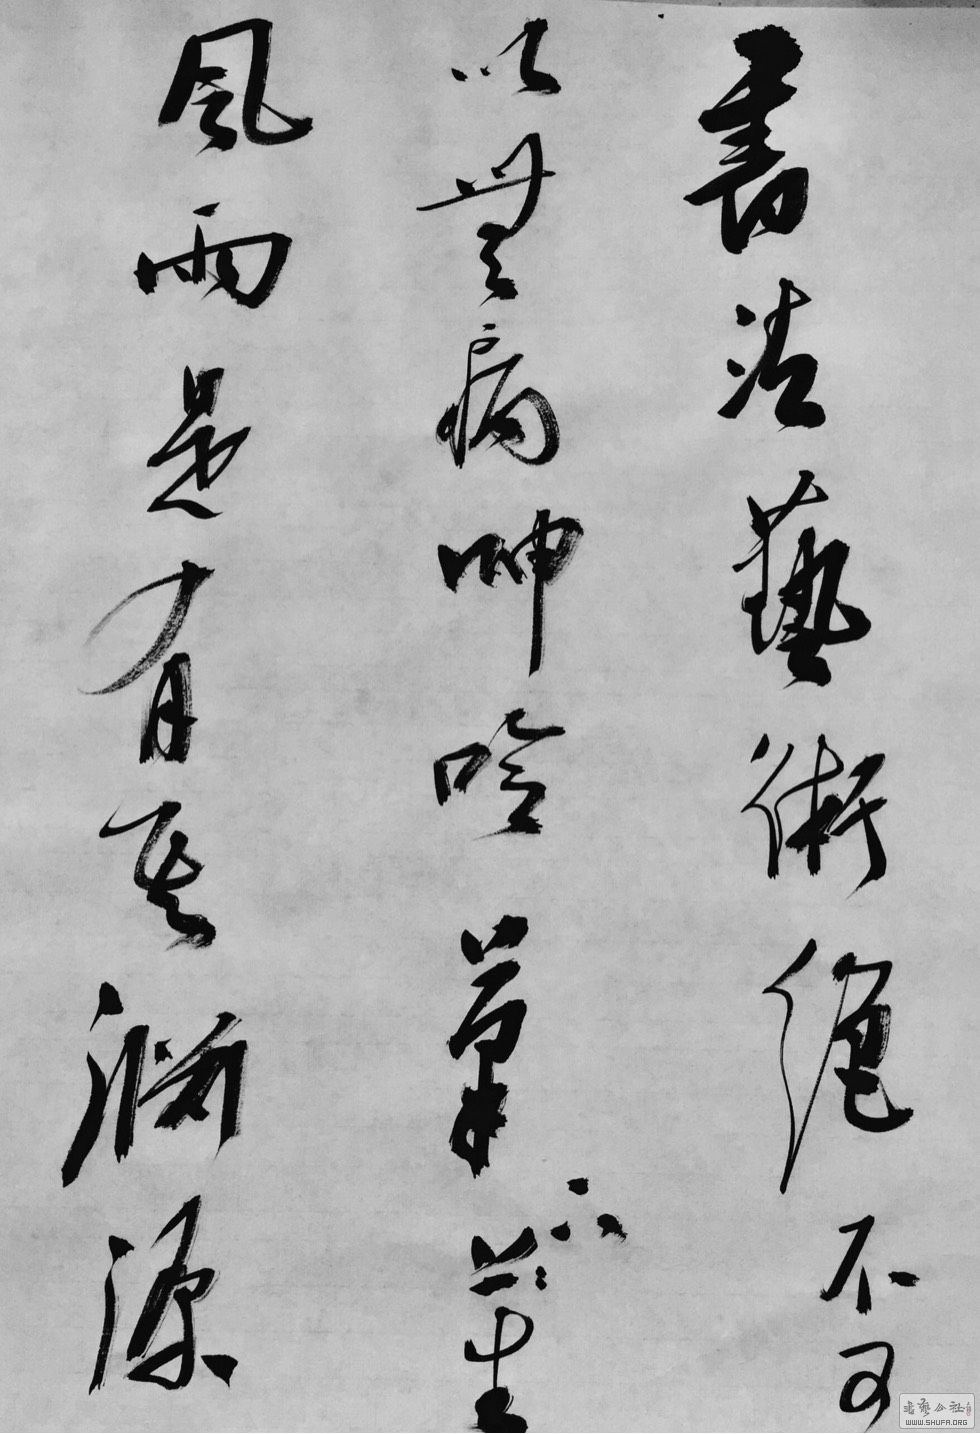 書法藝術絕不可
以無病呻吟筆下生
風雨是有其淵源
书艺公社
WWW.SHUFA.ORG